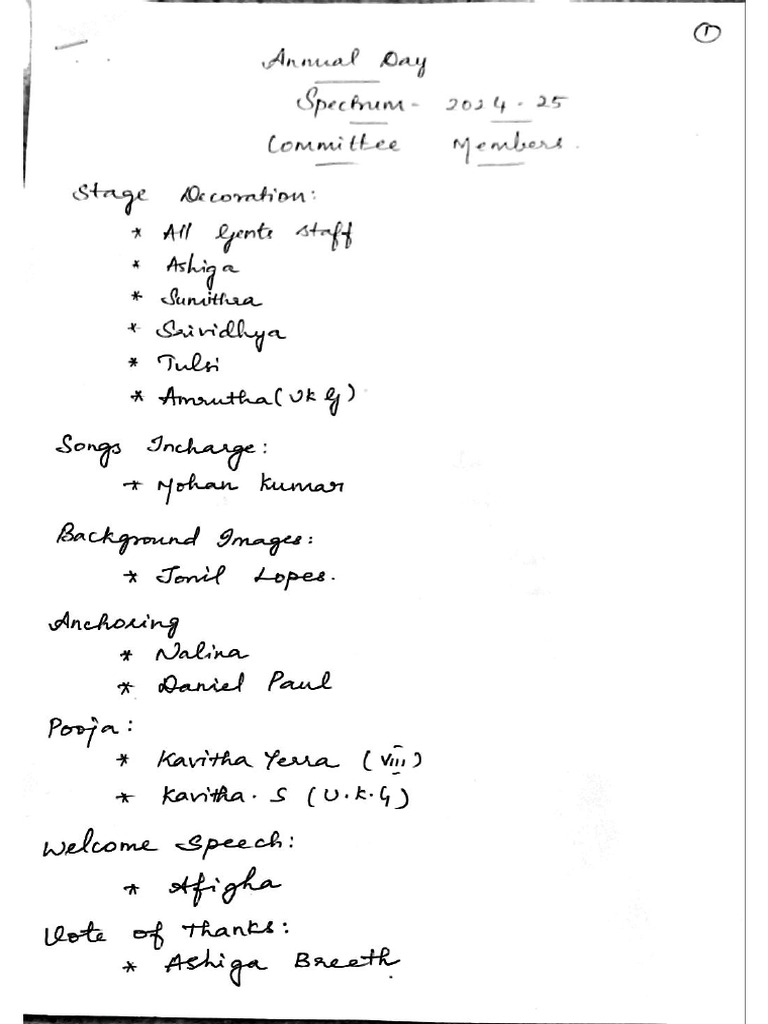 1
Annual Day
Spectrum - 2024 - 25
Committee Members.
Stage Decoration:
* All Gents Staff
* Ashiga
* Sumithra
* Srividhya
* Tulsi
* Amrutha (UKG)
Songs Incharge:
* Mohan Kumar
Background Images:
* Jonil Lopes.
Anchoring
* Nalina
* Daniel Paul
Pooja:
* Kavitha Yerra (VIII)
* Kavitha. S (U.K.G)
Welcome Speech:
* Afigha
Vote of Thanks:
* Ashiga Breeth.